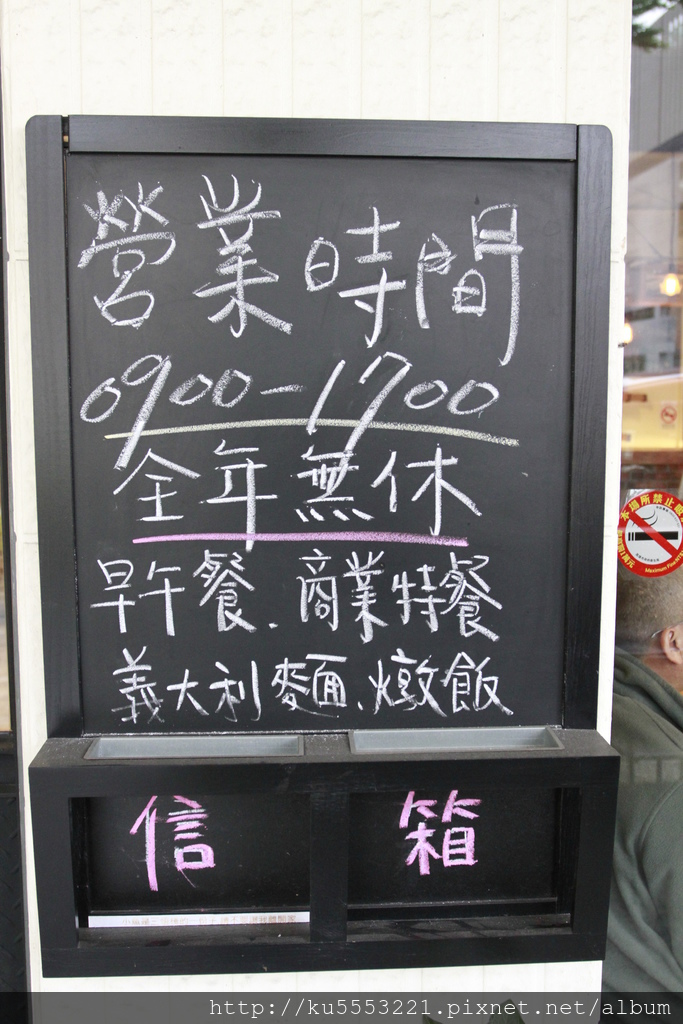 營業時間
0900-1700
全年無休
早午餐.商業特餐
義大利麵.燉飯
信箱
本場所禁止吸
http://ku5553221.pixnet.net/album